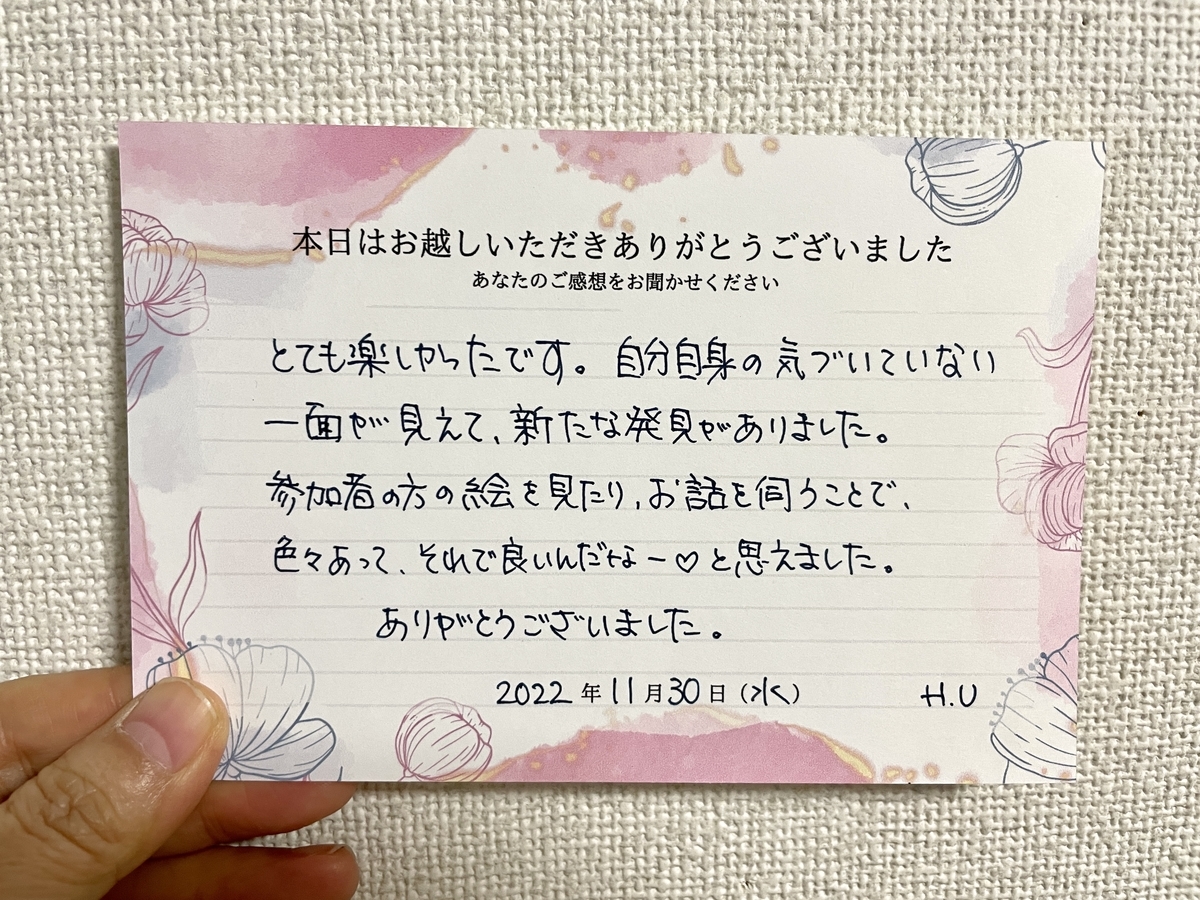 本日はお越しいただきありがとうございました
あなたのご感想をお聞かせください
とても楽しかったです。自分自身の気づいていない
一面が見えて、新たな発見がありました。
参加者の方の絵を見たり、お話を伺うことで、
色々あって、それで良いんだなー♡と思えました。
ありがとうございました。
2022年11月30日(水) H.U